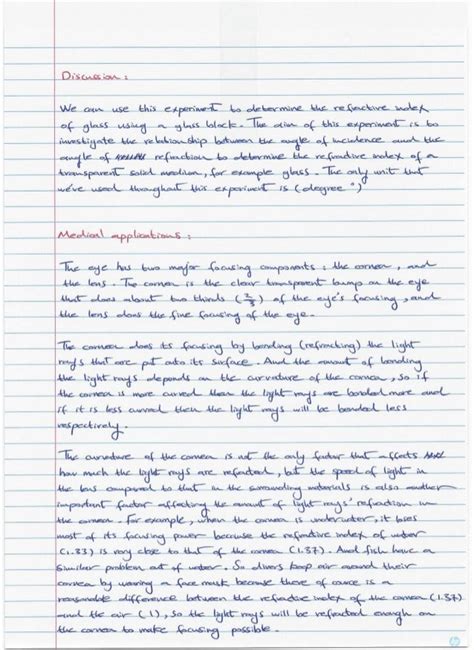 Discussion :
We can use this experiment to determine the refractive index
of glass using a glass block. The aim of this experiment is to
investigate the relationship between the angle of incidence and the
angle of refraction to determine the refractive index of a
transparent solid medium, for example glass. The only unit that
we've used throughout this experiment is (degree °)
Medical applications :
The eye has two major focusing components : the cornea, and
the lens. The cornea is the clear transparent bump on the eye
that does about two thirds (2/3) of the eye's focusing, and
the lens does the fine focusing of the eye.
The cornea does its focusing by bending (refracting) the light
rays that are put onto its surface. And the amount of bending
the light rays depends on the curvature of the cornea, so if
the cornea is more curved then the light rays are bended more and
if it is less curved then the light rays will be bended less
respectively.
The curvature of the cornea is not the only factor that affects
how much the light rays are refracted, but the speed of light in
the lens compared to that in the surrounding materials is also another
important factor affecting the amount of light rays' refraction in
the cornea. For example, when the cornea is underwater, it loses
most of its focusing power because the refractive index of water
(1.33) is very close to that of the cornea (1.37). And fish have a
similar problem out of water. So divers keep air around their
cornea by wearing a face mask because there of course is a
reasonable difference between the refractive index of the cornea (1.37)
and the air (1), so the light rays will be refracted enough on
the cornea to make focusing possible.
hp